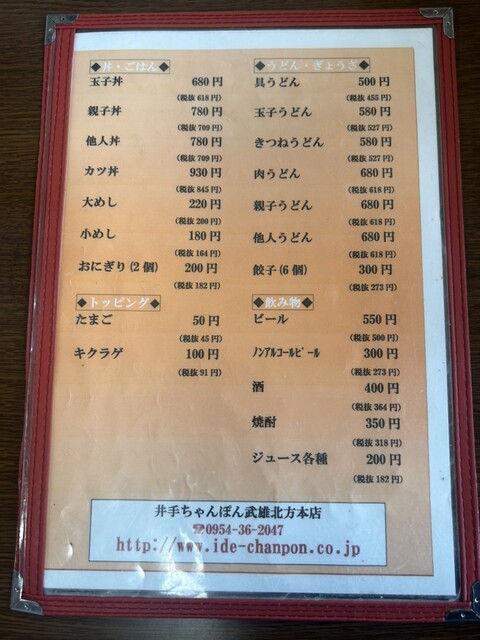 ◆丼・ごはん◆
玉子丼 680円
(税抜 618円)
親子丼 780円
(税抜 709円)
他人丼 780円
(税抜 709円)
カツ丼 930円
(税抜 845円)
大めし 220円
(税抜 200円)
小めし 180円
(税抜 164円)
おにぎり(2個) 200円
(税抜 182円)
◆トッピング◆
たまご 50円
(税抜 45円)
キクラゲ 100円
(税抜 91円)
◆うどん・ぎょうざ◆
具うどん 500円
(税抜 455円)
玉子うどん 580円
(税抜 527円)
きつねうどん 580円
(税抜 527円)
肉うどん 680円
(税抜 618円)
親子うどん 680円
(税抜 618円)
他人うどん 680円
(税抜 618円)
餃子(6個) 300円
(税抜 273円)
◆飲み物◆
ビール 550円
(税抜 500円)
ノンアルコールビール 300円
(税抜 273円)
酒 400円
(税抜 364円)
焼酎 350円
(税抜 318円)
ジュース各種 200円
(税抜 182円)
井手ちゃんぽん武雄北方本店
☎0954-36-2047
http://www.ide-chanpon.co.jp